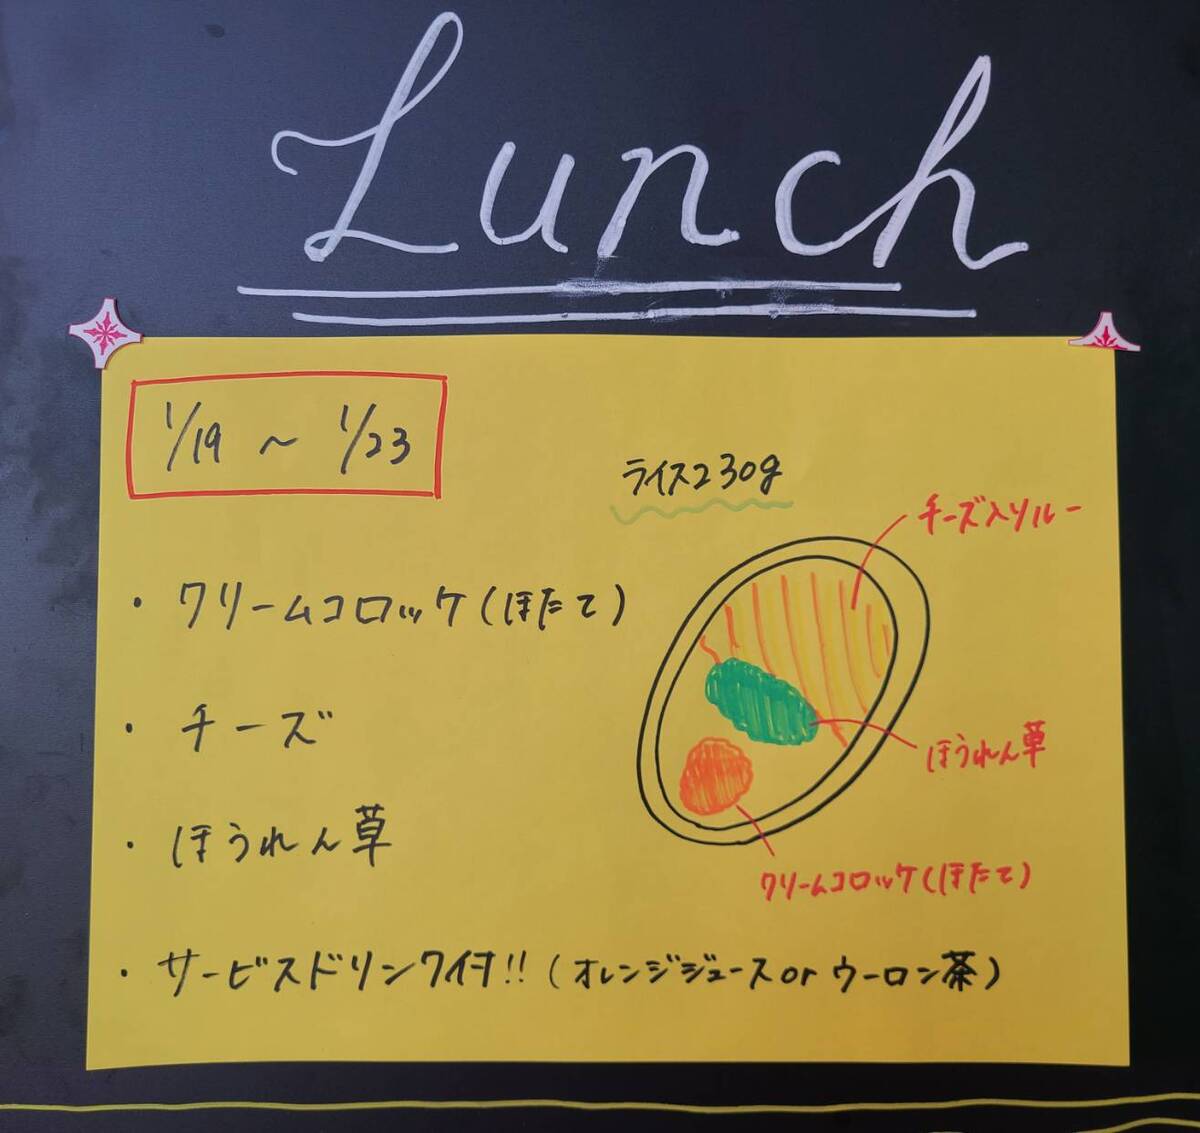 Lunch
1/19 ～ 1/23
ライス230g
チーズ入りルー
・クリームコロッケ(ほたて)
・チーズ
ほうれん草
・ほうれん草
クリームコロッケ(ほたて)
・サービスドリンク付!!(オレンジジュース or ウーロン茶)